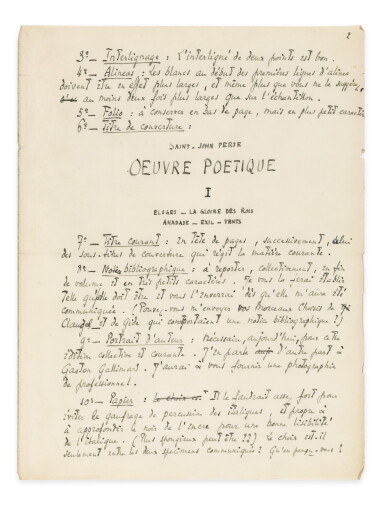 2
3° – Interlignage : L'interligne de deux points est bon.
4° – Alinéas : Les blancs au début des premières lignes d'alinéa
doivent être en effet plus larges, et même plus que vous ne le suggérez,
au moins deux fois plus larges que sur l'échantillon.
5° – Folio : à conserver en bas de page, mais en plus petit caractère
6° – Titre de couverture :
SAINT-JOHN PERSE
OEUVRE POETIQUE
I
ELOGES – LA GLOIRE DES ROIS
ANABASE – EXIL – VENTS
7° – Titre courant : en tête de pages, successivement, celui
des sous-titres de couverture qui régit la matière courante.
8° – Note bibliographique : à reporter, collectivement, en fin
de volume et en très petits caractères. Je vous la ferai établir
telle qu'elle doit être et vous l'enverrai dès qu'elle m'aura été
communiquée. (Pouvez-vous m'envoyer vos Morceaux Choisis de
Claudel et de Gide qui comportaient une notice bibliographique ?)
9° – Portrait d'auteur : nécessaire, aujourd'hui, pour cette
édition collective et courante. J'en parle d'autre part à
Gaston Gallimard. J'aurai à vous fournir une photographie
de professionnel.
10° – Papier : le choix est Il le faudrait assez fort pour
éviter le gaufrage de percussion des italiques, et propre à
approfondir le noir de l'encre pour une bonne lisibilité
de l'italique. (Plus spongieux peut être ??) Le choix est-il
seulement entre les deux spécimens communiqués ? Qu'en pensez-vous ?